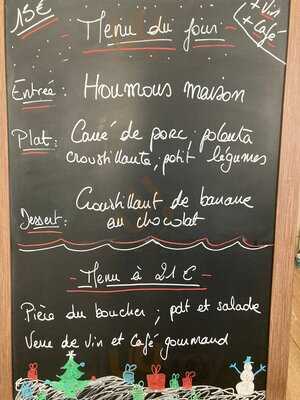 15€
+ Vin
+ Café
Menu du jour
Entrée : Houmous maison
Plat : Carré de porc ; polenta
croustillante ; petit légumes
Dessert : Croustillant de banane
au chocolat
- Menu à 21 € -
Pièce du boucher ; pdt et salade
Verre de vin et Café gourmand